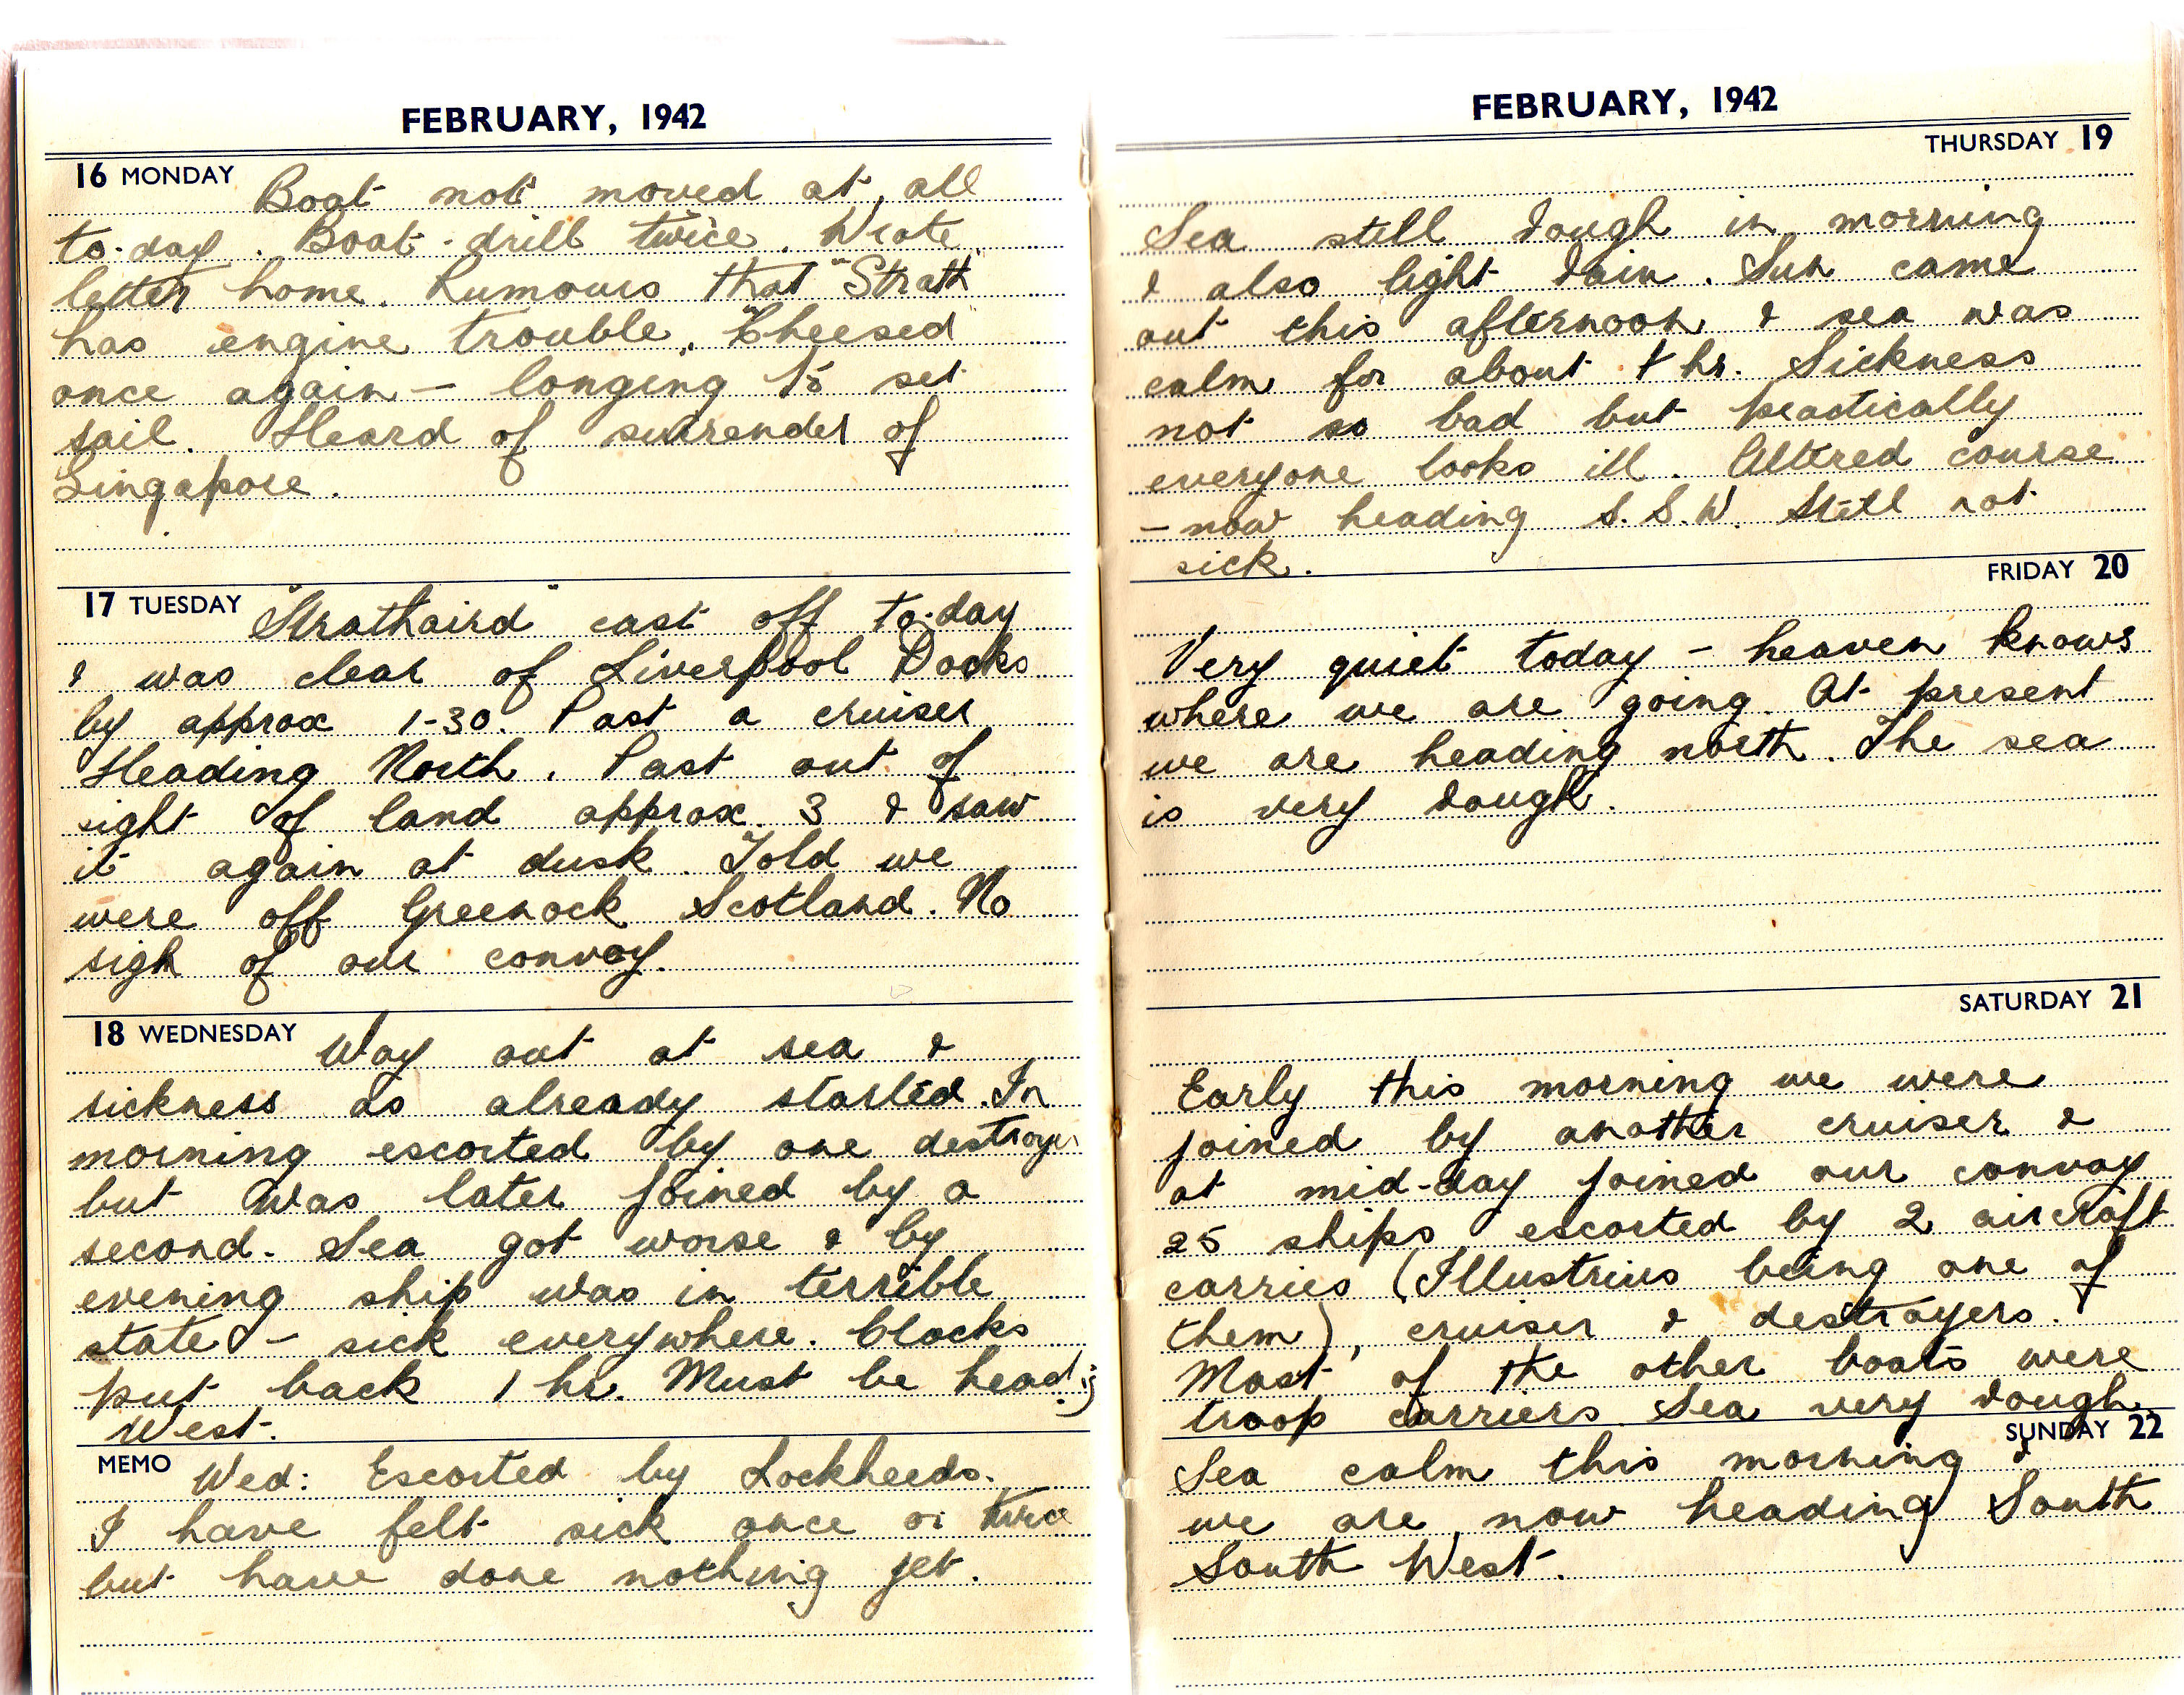 FEBRUARY, 1942
16 MONDAY
Boat not moved at all
to-day. Boat-drill twice. Wrote
letter home. Rumours that "Strath"
has engine trouble. "Cheesed"
once again - longing to set
sail. Heard of surrender of
Singapore.
17 TUESDAY
"Strathaird" cast off to-day
& was clear of Liverpool Docks
by approx 1-30. Past a cruiser
Heading North. Past out of
sight of land approx. 3 & saw
it again at dusk. Told we
were off Greenock Scotland. No
sign of our convoy.
18 WEDNESDAY
Way out at sea &
sickness as already started. In
morning escorted by one destroyer
but was later joined by a
second. Sea got worse & by
evening ship was in terrible
state - sick everywhere. Clocks
put back 1 hr. Must be heading
West.
MEMO
Wed: Escorted by Lockheeds.
I have felt sick once or twice
but have done nothing yet.
FEBRUARY, 1942
THURSDAY 19
Sea still rough in morning
& also light rain. Sun came
out this afternoon & sea was
calm for about 1 hr. Sickness
not so bad but practically
everyone looks ill. Altered course
- now heading S.S.W. Still not
sick.
FRIDAY 20
Very quiet today - heaven knows
where we are going. At present
we are heading north. The sea
is very rough.
SATURDAY 21
Early this morning we were
joined by another cruiser &
at mid-day joined our convoy
25 ships escorted by 2 aircraft
carries (Illustrius being one of
them), cruiser & destroyers.
Most of the other boats were
troop carriers. Sea very rough.
SUNDAY 22
Sea calm this morning &
we are now heading South
South West.